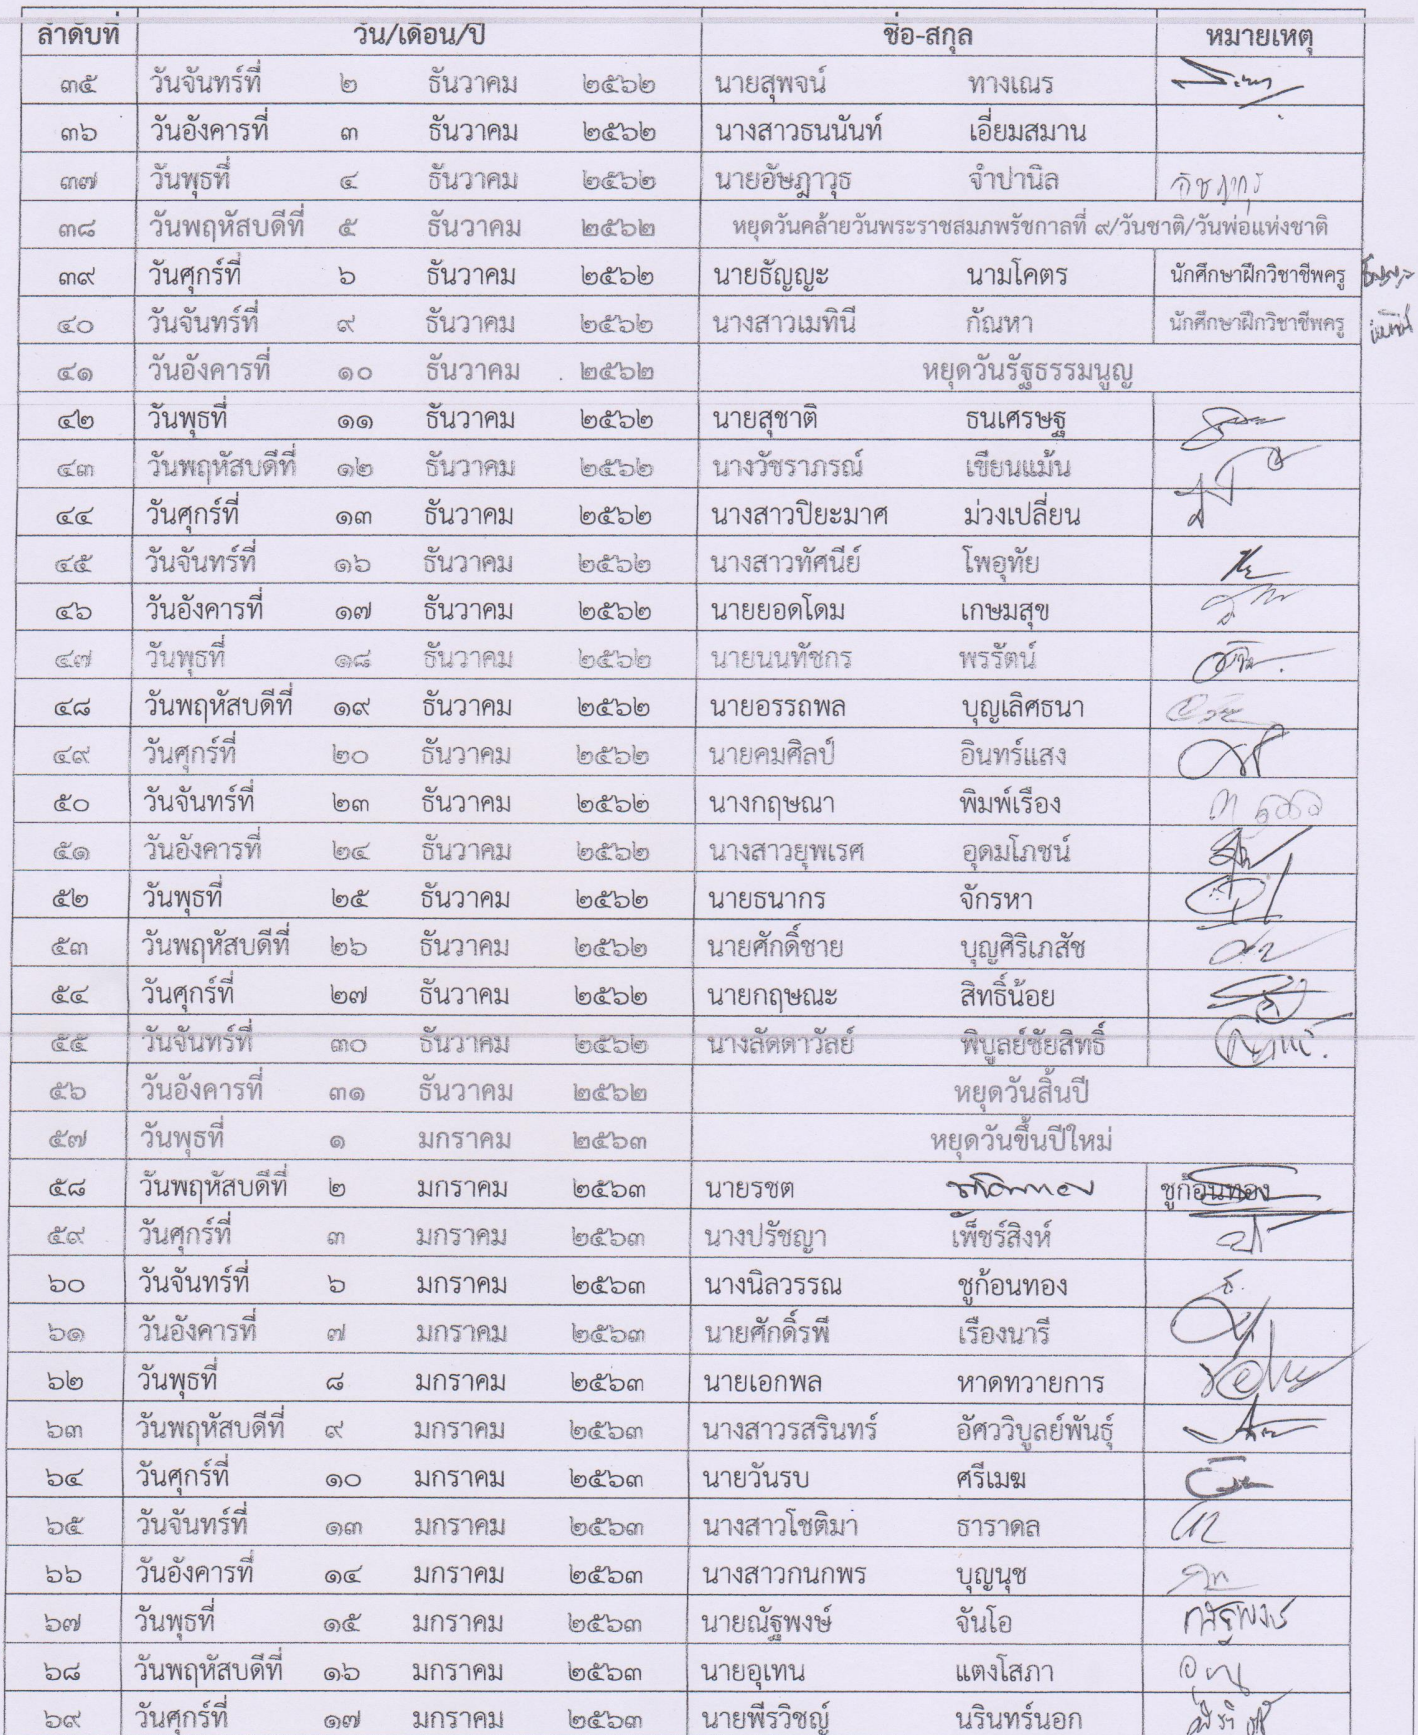 ลำดับที่ วัน/เดือน/ปี ชื่อ-สกุล หมายเหตุ
๓๕ วันจันทร์ที่ ๒ ธันวาคม ๒๕๖๒ นายสุพจน์ ทางเณร
๓๖ วันอังคารที่ ๓ ธันวาคม ๒๕๖๒ นางสาวธนนันท์ เอี่ยมสมาน
๓๗ วันพุธที่ ๔ ธันวาคม ๒๕๖๒ นายอัษฎาวุธ จำปานิล
๓๘ วันพฤหัสบดีที่ ๕ ธันวาคม ๒๕๖๒ หยุดวันคล้ายวันพระราชสมภพรัชกาลที่ ๙/วันชาติ/วันพ่อแห่งชาติ
๓๙ วันศุกร์ที่ ๖ ธันวาคม ๒๕๖๒ นายธัญญะ นามโคตร นักศึกษาฝึกวิชาชีพครู
๔๐ วันจันทร์ที่ ๙ ธันวาคม ๒๕๖๒ นางสาวเมทินี กัณหา นักศึกษาฝึกวิชาชีพครู
๔๑ วันอังคารที่ ๑๐ ธันวาคม ๒๕๖๒ หยุดวันรัฐธรรมนูญ
๔๒ วันพุธที่ ๑๑ ธันวาคม ๒๕๖๒ นายสุชาติ ธนเศรษฐ
๔๓ วันพฤหัสบดีที่ ๑๒ ธันวาคม ๒๕๖๒ นางวัชราภรณ์ เขียนแม้น
๔๔ วันศุกร์ที่ ๑๓ ธันวาคม ๒๕๖๒ นางสาวปิยะมาศ ม่วงเปลี่ยน
๔๕ วันจันทร์ที่ ๑๖ ธันวาคม ๒๕๖๒ นางสาวทัศนีย์ โพอุทัย
๔๖ วันอังคารที่ ๑๗ ธันวาคม ๒๕๖๒ นายยอดโดม เกษมสุข
๔๗ วันพุธที่ ๑๘ ธันวาคม ๒๕๖๒ นายนนทัชกร พรรัตน์
๔๘ วันพฤหัสบดีที่ ๑๙ ธันวาคม ๒๕๖๒ นายอรรถพล บุญเลิศธนา
๔๙ วันศุกร์ที่ ๒๐ ธันวาคม ๒๕๖๒ นายคมศิลป์ อินทร์แสง
๕๐ วันจันทร์ที่ ๒๓ ธันวาคม ๒๕๖๒ นางกฤษณา พิมพ์เรือง
๕๑ วันอังคารที่ ๒๔ ธันวาคม ๒๕๖๒ นางสาวยุพเรศ อุดมโภชน์
๕๒ วันพุธที่ ๒๕ ธันวาคม ๒๕๖๒ นายธนากร จักรหา
๕๓ วันพฤหัสบดีที่ ๒๖ ธันวาคม ๒๕๖๒ นายศักดิ์ชาย บุญศิริเภสัช
๕๔ วันศุกร์ที่ ๒๗ ธันวาคม ๒๕๖๒ นายกฤษณะ สิทธิ์น้อย
๕๕ วันจันทร์ที่ ๓๐ ธันวาคม ๒๕๖๒ นางลัดดาวัลย์ พิบูลย์ชัยสิทธิ์
๕๖ วันอังคารที่ ๓๑ ธันวาคม ๒๕๖๒ หยุดวันสิ้นปี
๕๗ วันพุธที่ ๑ มกราคม ๒๕๖๓ หยุดวันขึ้นปีใหม่
๕๘ วันพฤหัสบดีที่ ๒ มกราคม ๒๕๖๓ นายรชต ชูก้อนทอง
๕๙ วันศุกร์ที่ ๓ มกราคม ๒๕๖๓ นางปรัชญา เพ็ชร์สิงห์
๖๐ วันจันทร์ที่ ๖ มกราคม ๒๕๖๓ นางนิลวรรณ ชูก้อนทอง
๖๑ วันอังคารที่ ๗ มกราคม ๒๕๖๓ นายศักดิ์รพี เรืองนารี
๖๒ วันพุธที่ ๘ มกราคม ๒๕๖๓ นายเอกพล หาดทวายการ
๖๓ วันพฤหัสบดีที่ ๙ มกราคม ๒๕๖๓ นางสาวรสรินทร์ อัศววิบูลย์พันธุ์
๖๔ วันศุกร์ที่ ๑๐ มกราคม ๒๕๖๓ นายวันรบ ศรีเมฆ
๖๕ วันจันทร์ที่ ๑๓ มกราคม ๒๕๖๓ นางสาวโชติมา ธาราดล
๖๖ วันอังคารที่ ๑๔ มกราคม ๒๕๖๓ นางสาวกนกพร บุญนุช
๖๗ วันพุธที่ ๑๕ มกราคม ๒๕๖๓ นายณัฐพงษ์ จันโอ
๖๘ วันพฤหัสบดีที่ ๑๖ มกราคม ๒๕๖๓ นายอุเทน แตงโสภา
๖๙ วันศุกร์ที่ ๑๗ มกราคม ๒๕๖๓ นายพีรวิชญ์ นรินทร์นอก